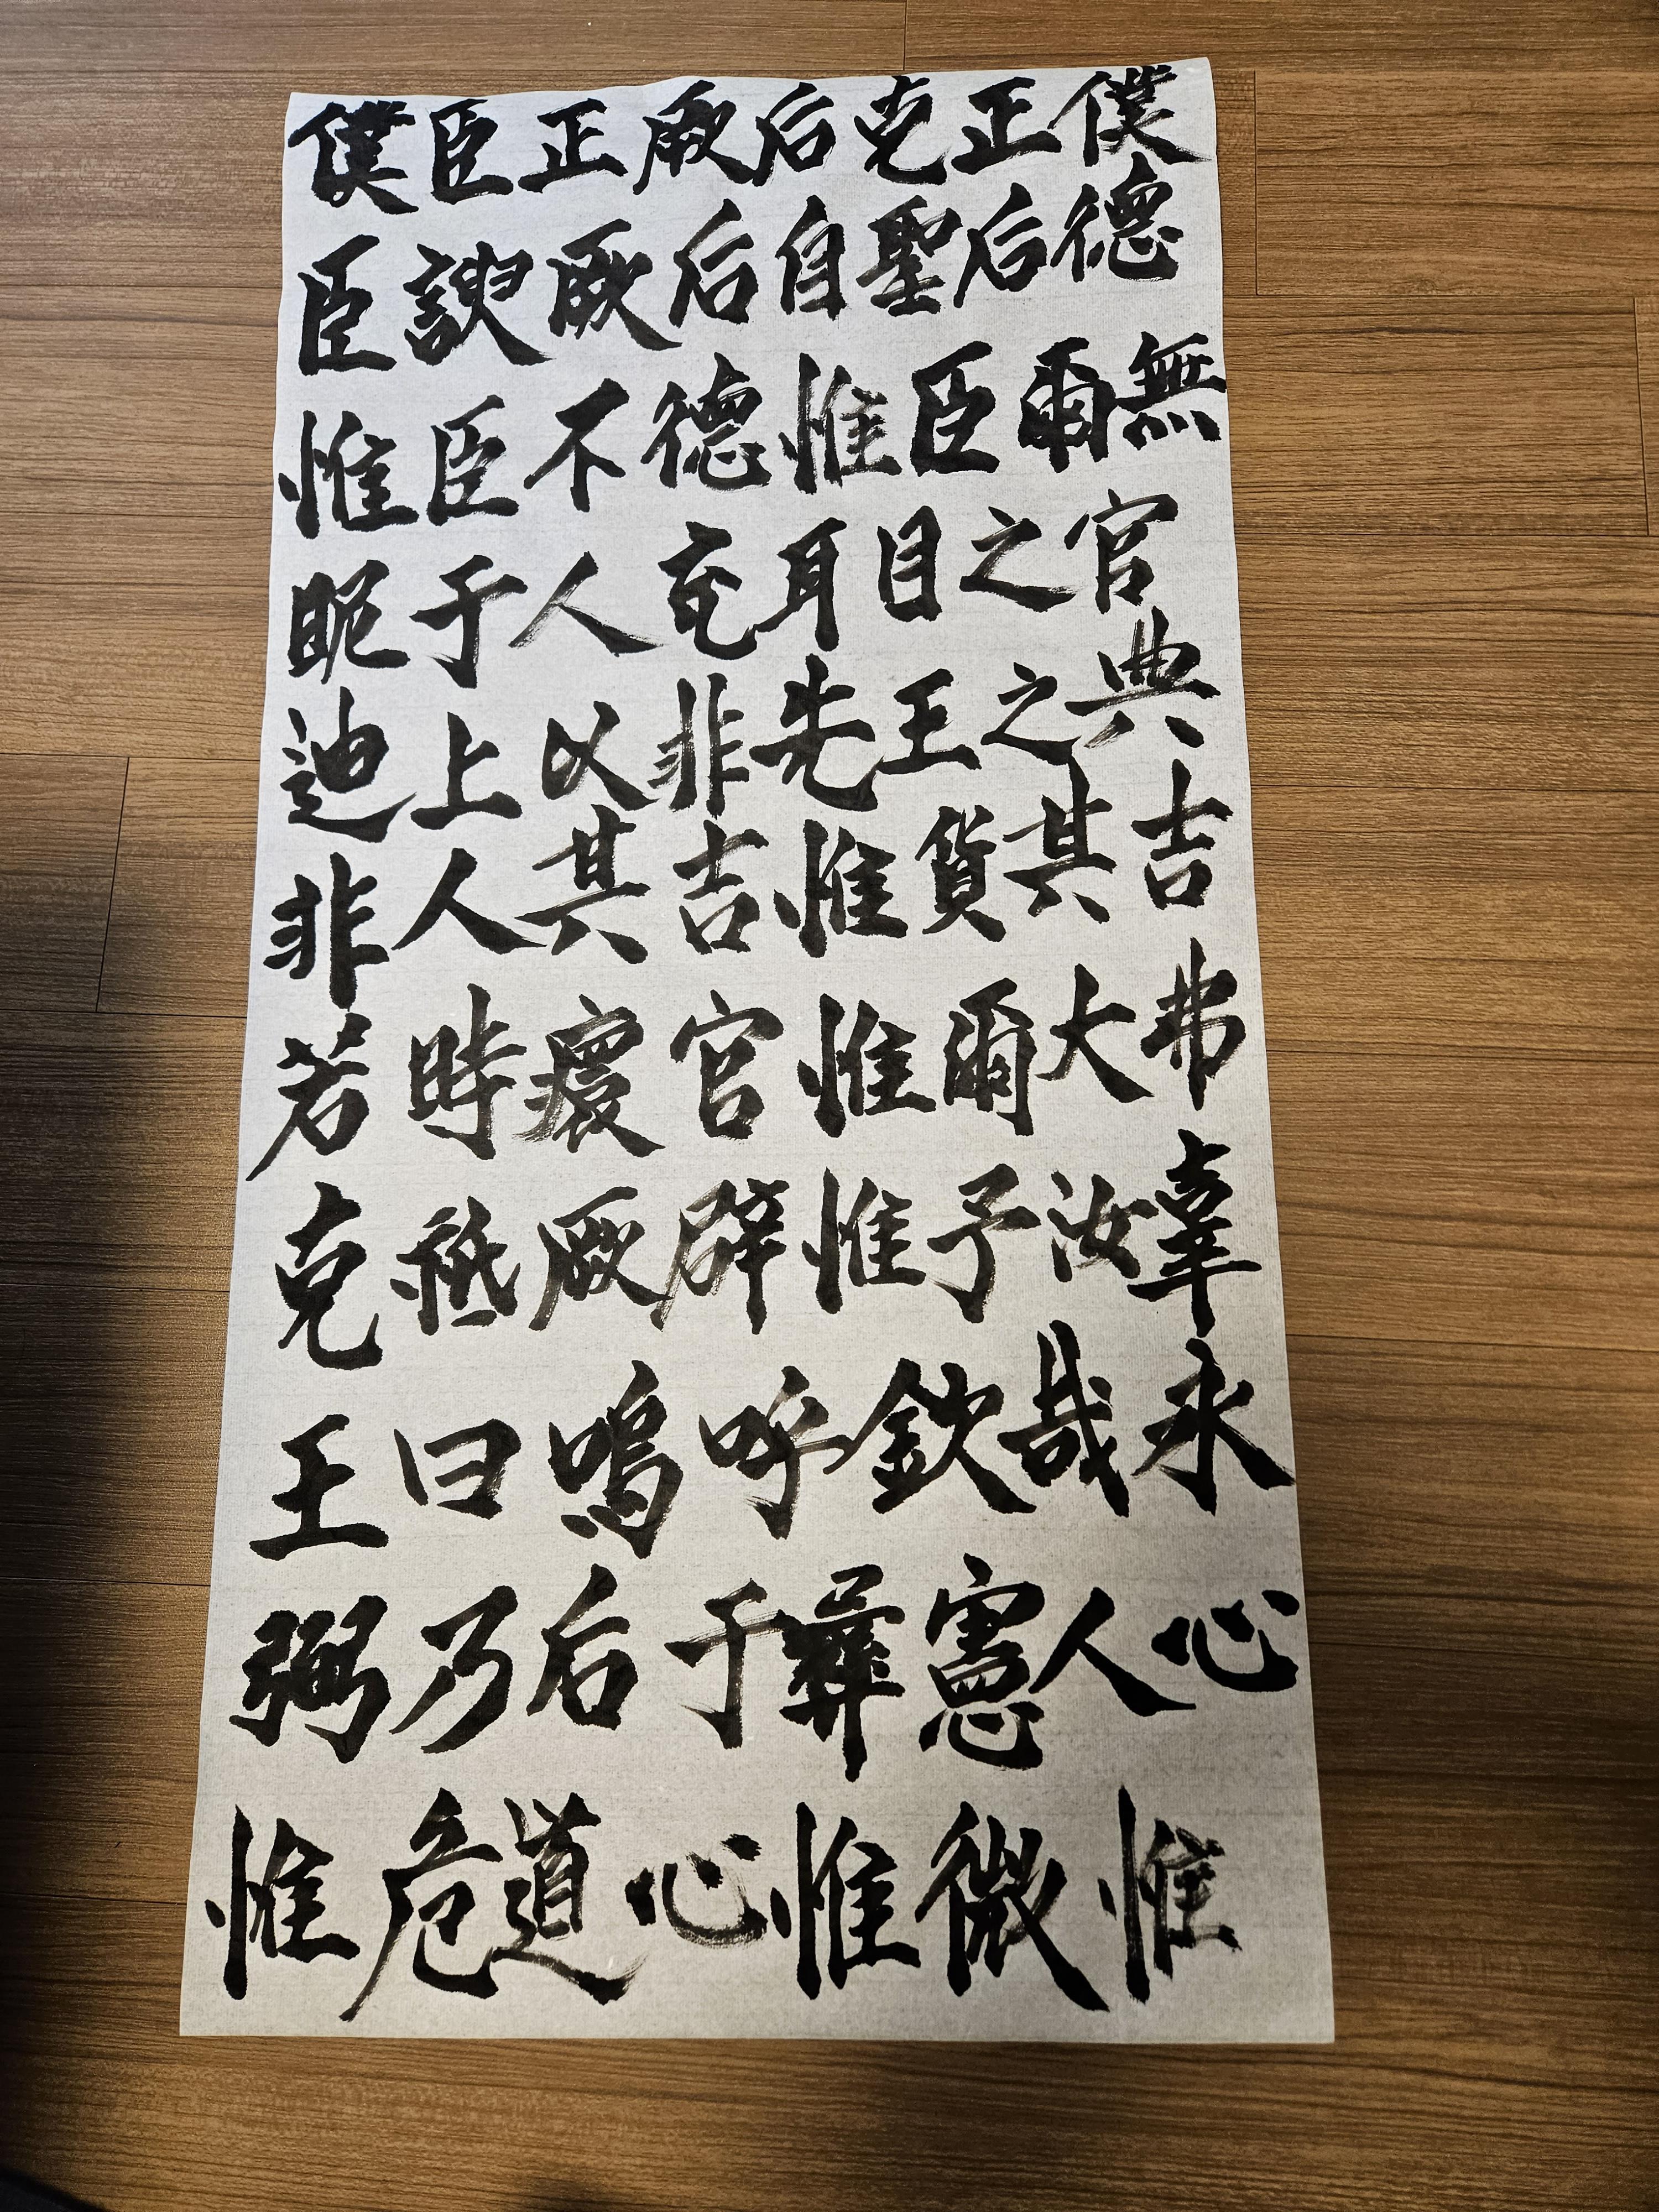 僕臣正厥后克正僕
臣諛厥后自聖后德
惟臣不德惟臣爾無
昵于人充耳目之官
迪上以非先王之典
非人其吉惟貨其吉
若時瘝官惟爾大弗
克祗厥辟惟予汝辜
王曰嗚呼欽哉永
弼乃后于彝憲人心
惟危道心惟微惟